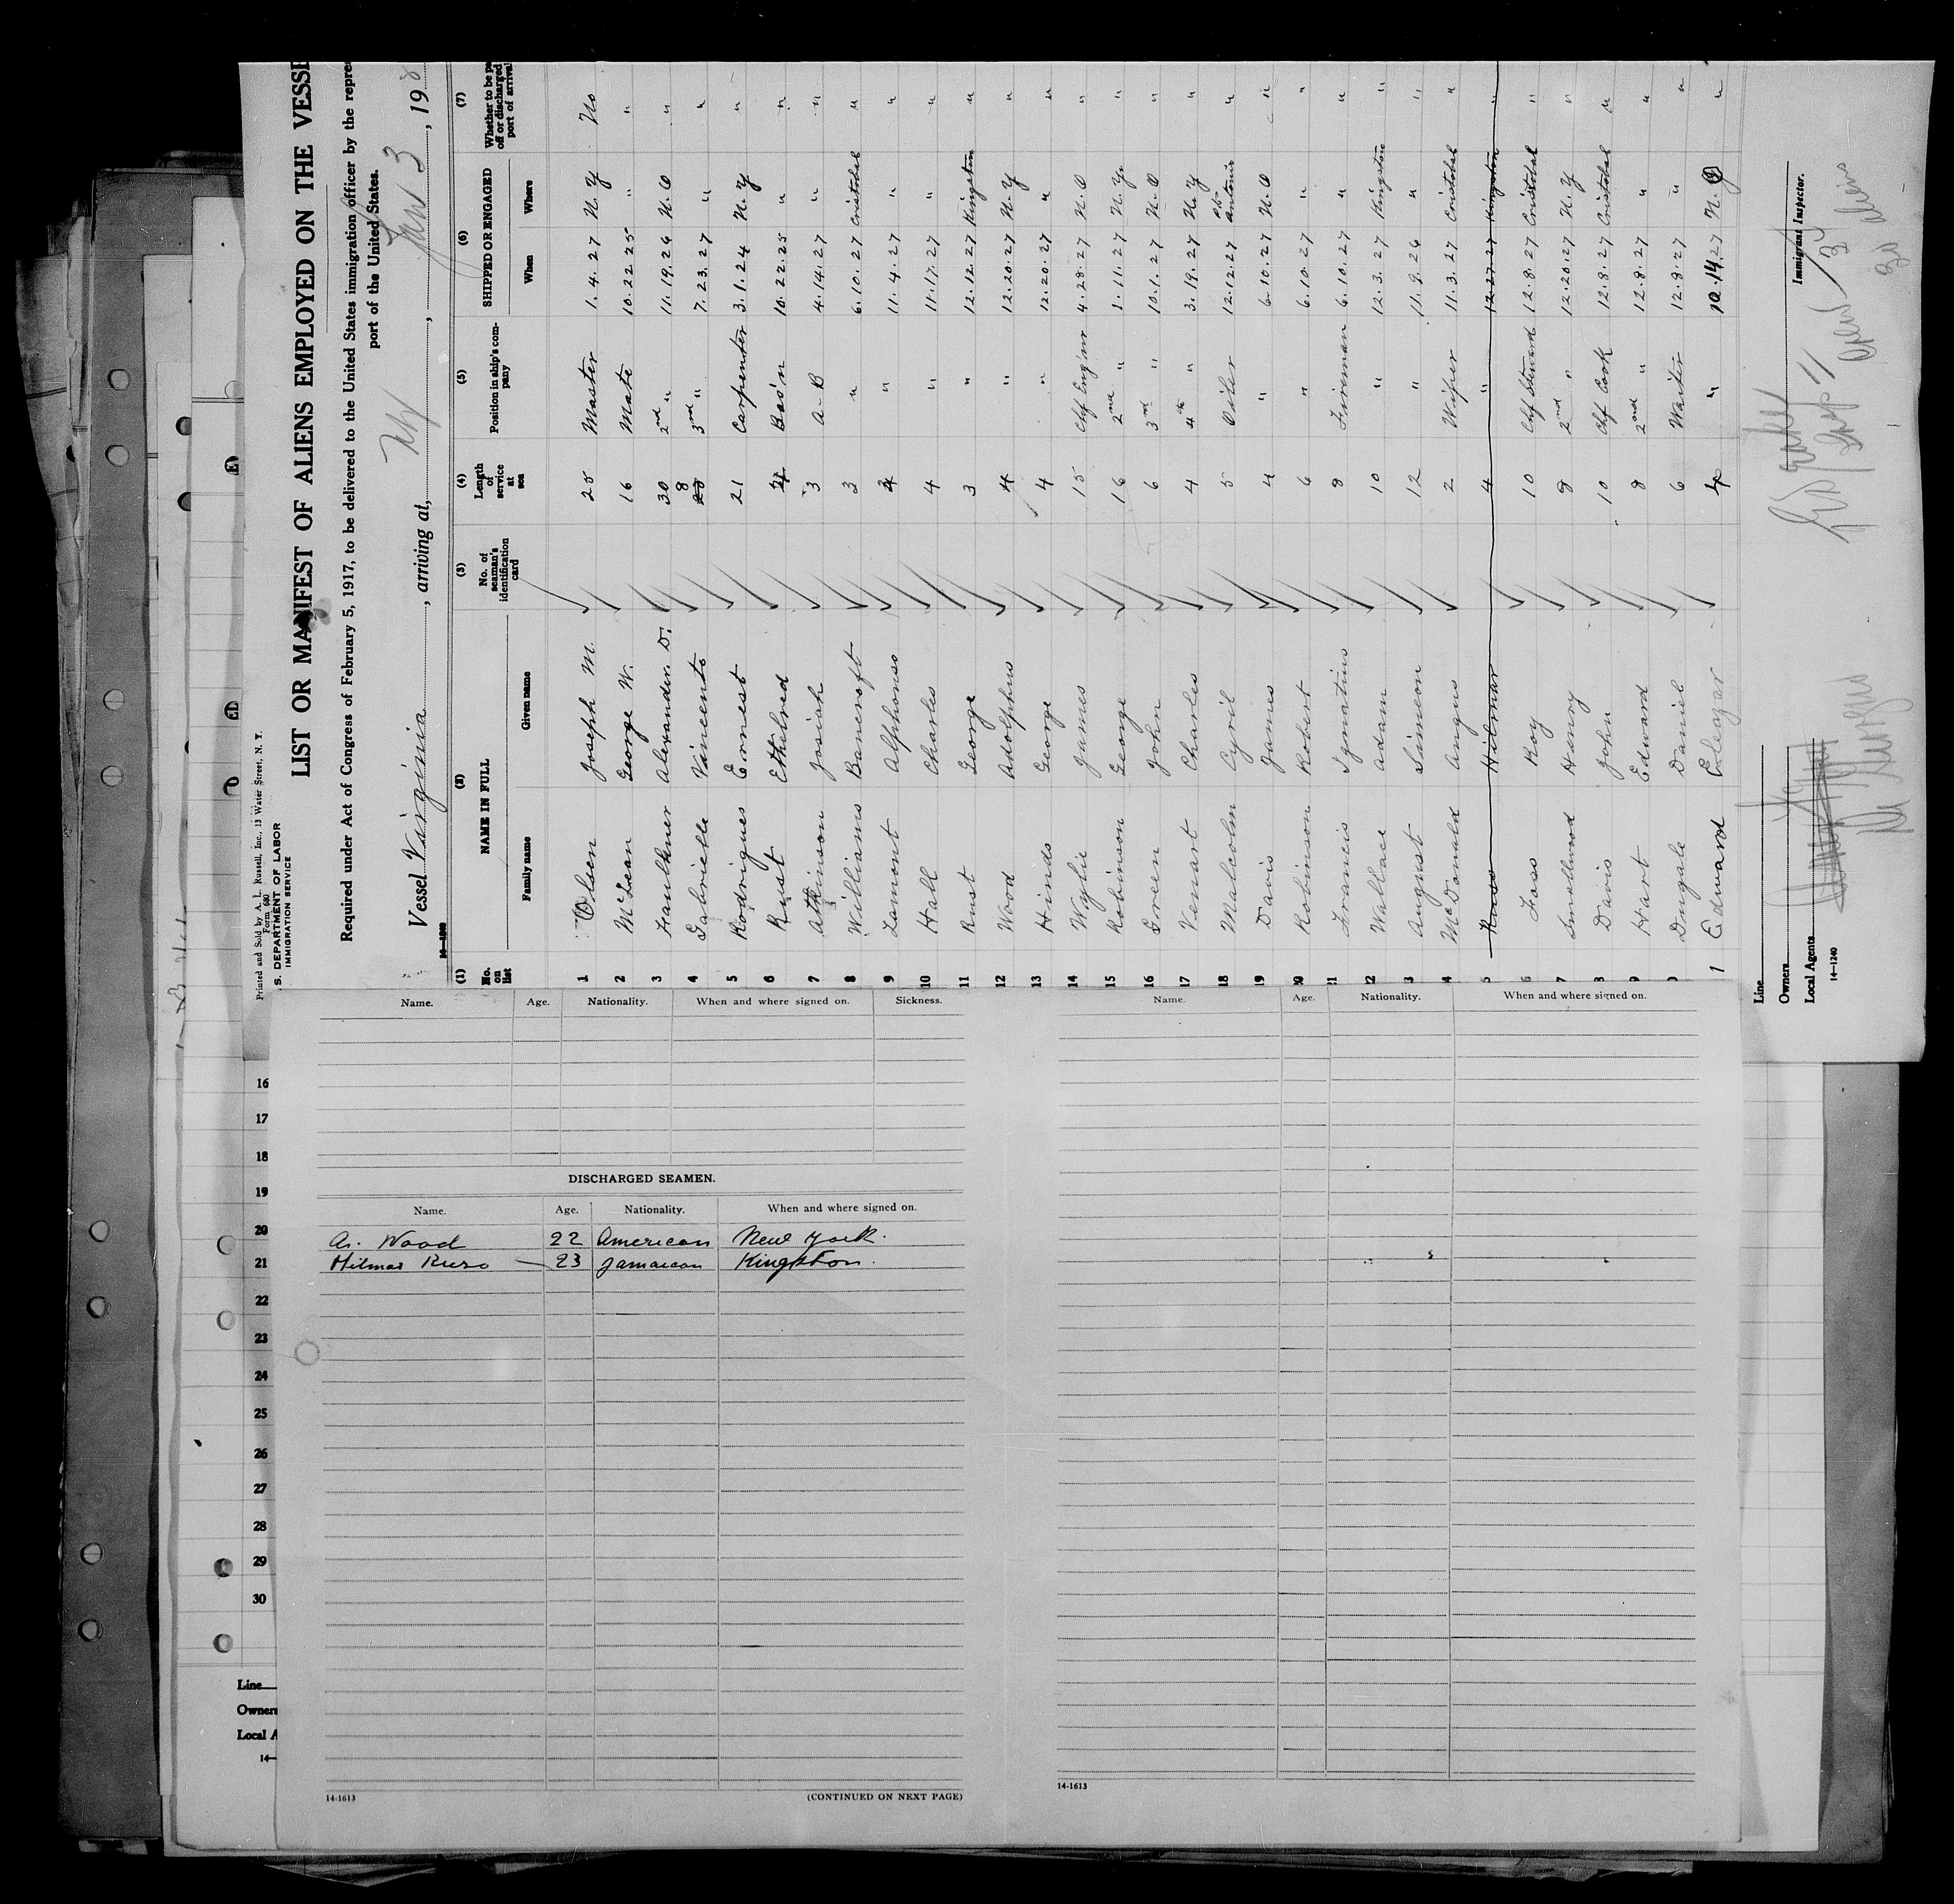 Printed and Sold by A. L. Russell, Inc., 13 Water Street, N. Y.
Form 680
S. DEPARTMENT OF LABOR
IMMIGRATION SERVICE
LIST OR MANIFEST OF ALIENS EMPLOYED ON THE VESSE
Required under Act of Congress of February 5, 1917, to be delivered to the United States immigration officer by the repres
port of the United States.
Vessel Virginia, arriving at, NY, Jan 3, 198
(1) (2) (3) (4) (5) (6) (7)
No. on list NAME IN FULL No. of seaman's identification card Length of service at sea Position in ship's company SHIPPED OR ENGAGED Whether to be pa off or discharged port of arrival
Family name Given name When Where
1 Olsen Joseph M. 25 Master 1.4.27 N.Y No
2 McLean George W. 16 Mate 10.22.25 " "
3 Faulkner Alexander. D. 30 2nd " 11.19.26 N.O "
4 Gabrielle Vincente 8 3rd " 7.23.27 " "
5 Rodrigues Ernest 21 Carpenter 3.1.24 N.Y "
6 Rust Ethelred Bos'n 10.22.25 " "
7 Atkinson Josiah 3 A-B 4.14.27 " "
8 Williams Bancroft 3 " 6.10.27 Cristobal "
9 Lamont Alphonso " 11.4.27 " "
10 Hall Charles 4 " 11.17.27 " "
11 Rust George 3 " 12.12.27 Kingston "
12 Wood Adolphus 4 " 12.20.27 N.Y "
13 Hinds George 4 " 12.20.27 " "
14 Wylie James 15 Chf Eng'ner 4.28.27 N.O "
15 Robinson George 16 2nd " 1.11.27 N.Y. "
16 Green John 6 3rd " 10.1.27 N.O "
17 Venart Charles 4 4th " 3.19.27 N.Y "
18 Malcolm Cyril 5 Oiler 12.12.27 Pto Antonio "
19 Davis James 4 " 6.10.27 N.O "
20 Robinson Robert 6 " 6.10.27 " "
21 Francis Ignatius 8 Fireman 6.10.27 " "
22 Wallace Adam 10 " 12.3.27 Kingston "
3 August Simeon 12 " 11.9.26 " "
4 McDonald Angus 2 Wiper 11.3.27 Cristobal "
5 Russo Hilmar 4 " 12.27.27 Kingston "
6 Foss Roy 10 Chf Steward 12.8.27 Cristobal "
7 Smallwood Henry 8 2nd " 12.20.27 N.Y "
8 Davis John 10 Chf Cook 12.8.27 Cristobal "
9 Hart Edward 8 2nd " 12.8.27 " "
0 Dugale Daniel 6 Waiter 12.8.27 " "
1 Edward Eleazer 4 " 10.14.27 N.O "
Line
Owners
Local Agents
14—1240
Immigrant Inspector.
Name. Age. Nationality. When and where signed on. Sickness.
Name. Age. Nationality. When and where signed on.
DISCHARGED SEAMEN.
Name. Age. Nationality. When and where signed on.
A. Wood 22 American New York.
Hilmar Russo 23 Jamaican Kingston.
14-1613
(CONTINUED ON NEXT PAGE)
14-1613
16
17
18
19
20
21
22
23
24
25
26
27
28
29
30
Line
Owners
Local A
14—